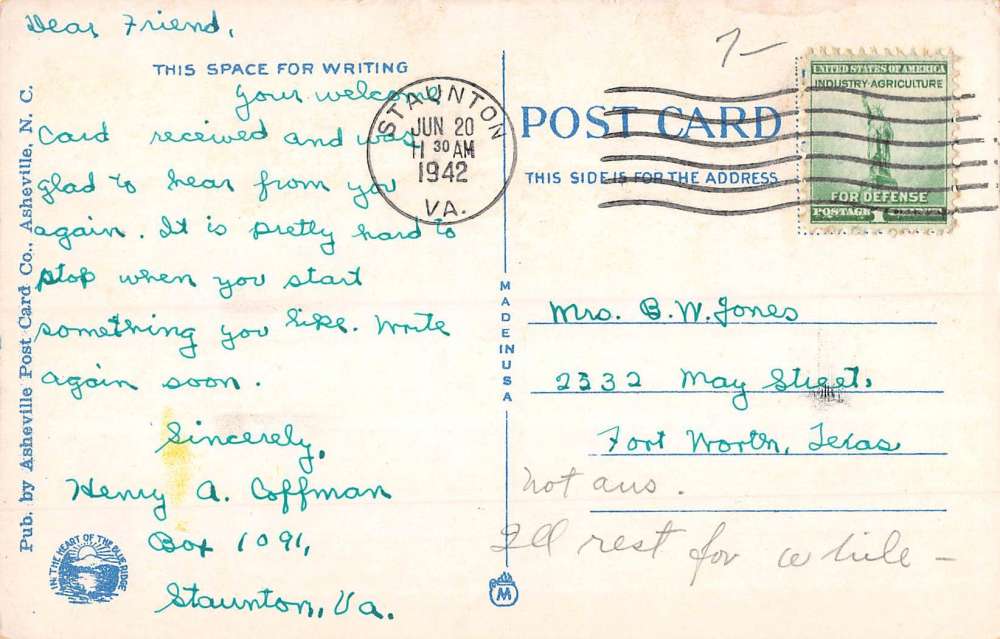 Dear Friend,
THIS SPACE FOR WRITING
Your welcome
Card received and was
glad to hear from you
again. It is pretty hard to
stop when you start
something you like. Write
again soon.
Sincerely,
Henry A. Coffman
Box 1091,
Staunton, Va.
Pub. by Asheville Post Card Co., Asheville, N. C.
IN THE HEART OF THE BLUE RIDGE
STAUNTON
JUN 20
11 30 AM
1942
VA.
7—
POST CARD
THIS SIDE IS FOR THE ADDRESS
UNITED STATES OF AMERICA
INDUSTRY·AGRICULTURE
FOR DEFENSE
POSTAGE 1
MADE IN USA
Mrs. B. W. Jones
2332 May Street,
Fort Worth, Texas
not ans.
I'll rest for a while –
M